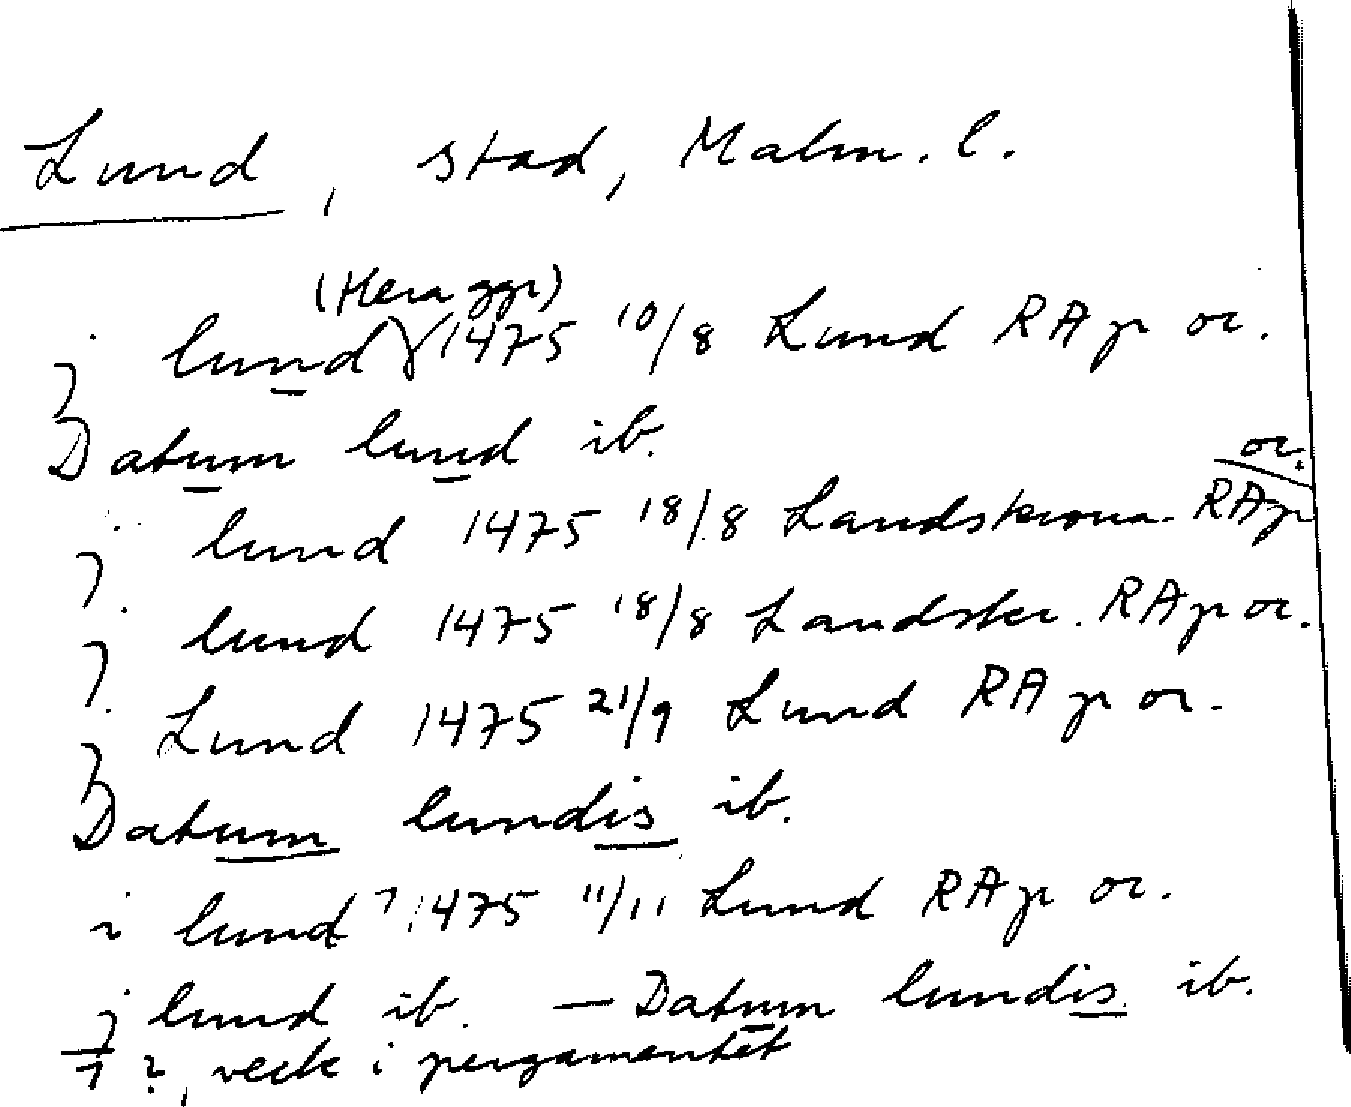 Lund, stad, Malm. l.
(flera ggr)
j lund 1475 10/8 Lund RAp or.
Datum lund ib.
or.
j lund 1475 18/8 Landskrona RAp
j lund 1475 18/8 Landskr. RAp or.
j Lund 1475 21/9 Lund RAp or.
Datum lundis ib.
i lund ⁊ 1475 11/11 Lund RAp or.
j lund ib. — Datum lundis ib.
⁊ ?, veck i pergamentet